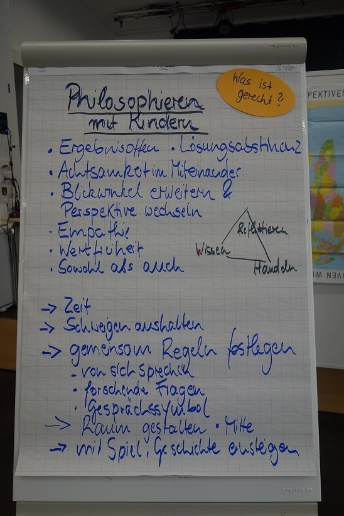 Was ist
gerecht?
Philosophieren
mit Kindern
• Ergebnisoffen • Lösungsabstinenz
• Achtsamkeit im Miteinander
• Blickwinkel erweitern &
Perspektive wechseln
• Empathie
• Wertfreiheit
• Sowohl als auch
Reflektieren
Wissen
Handeln
→ Zeit
→ Schweigen aushalten
→ gemeinsam Regeln festlegen
• von sich sprechen
• forschende Fragen
• Gesprächssymbol
→ Raum gestalten • Mitte
→ mit Spiel, Geschichte einsteigen